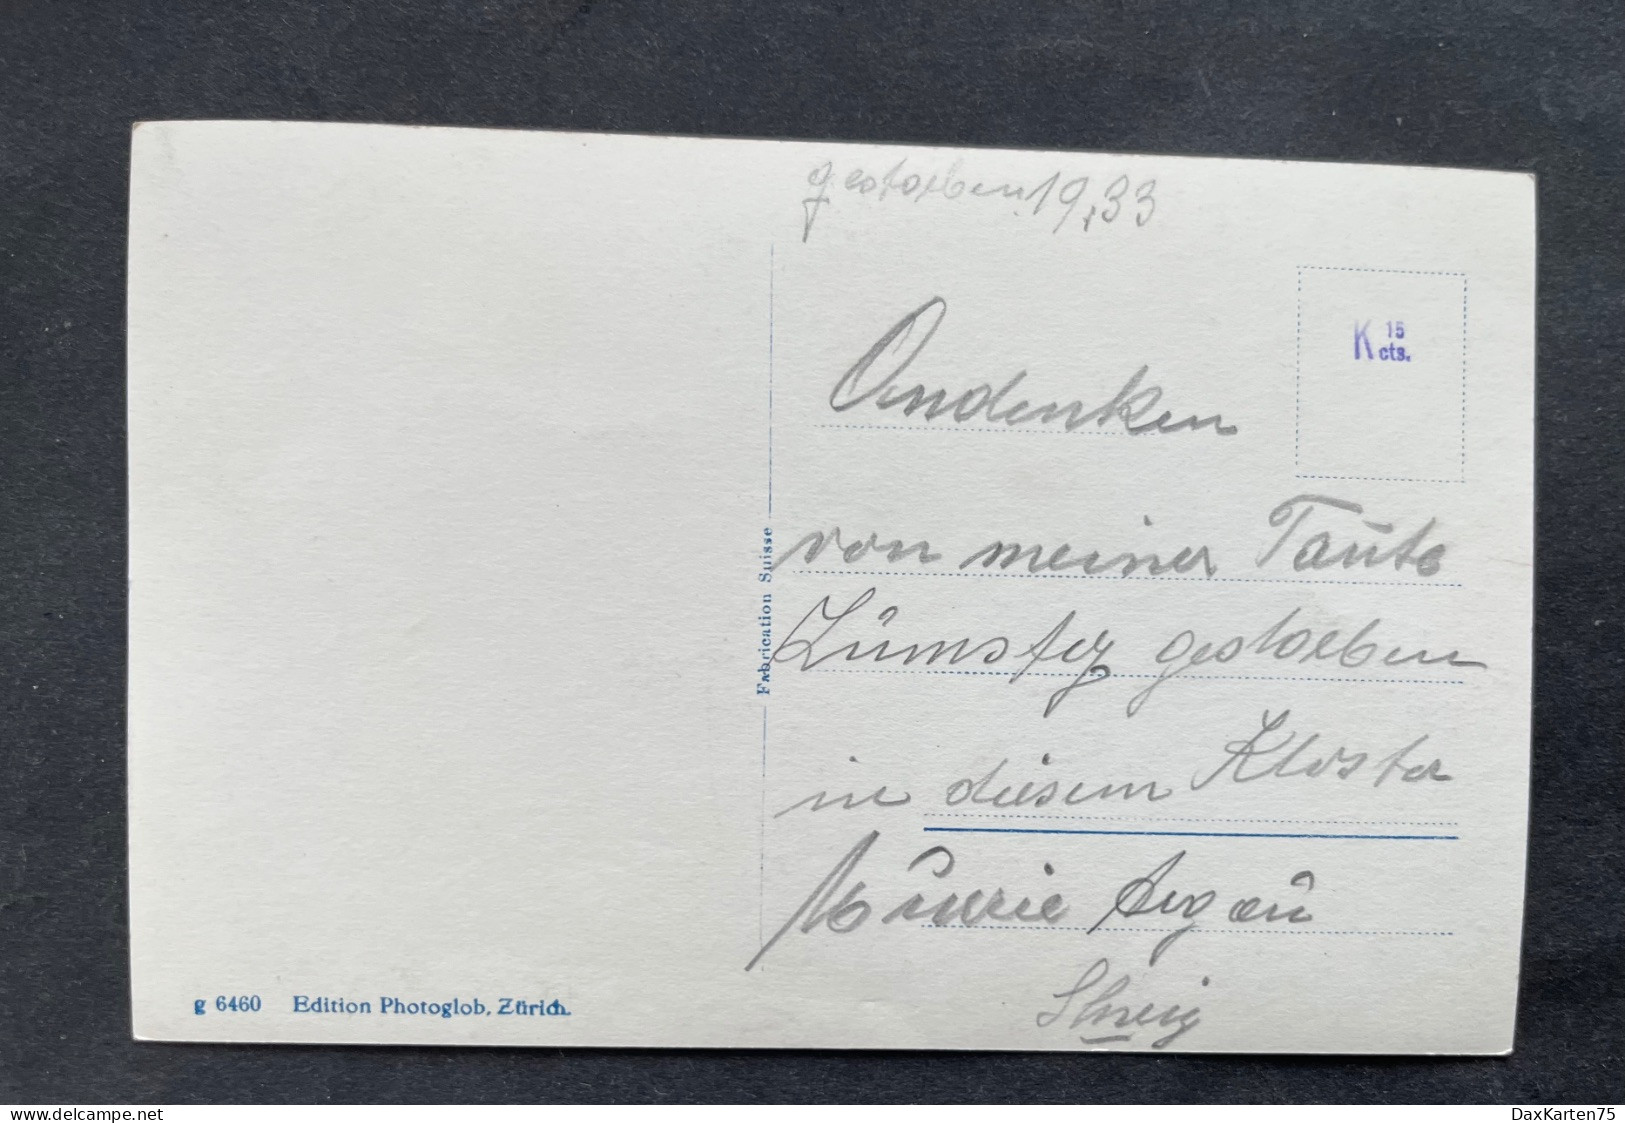 gestorben 19.33
K 15 cts.
Andenken
von meiner Tante
gestorben
in diesem Kloster
Muurie Argau
Fabrication Suisse
g 6460 Edition Photoglob, Zürich.
delcampe.net
DaxKarten75